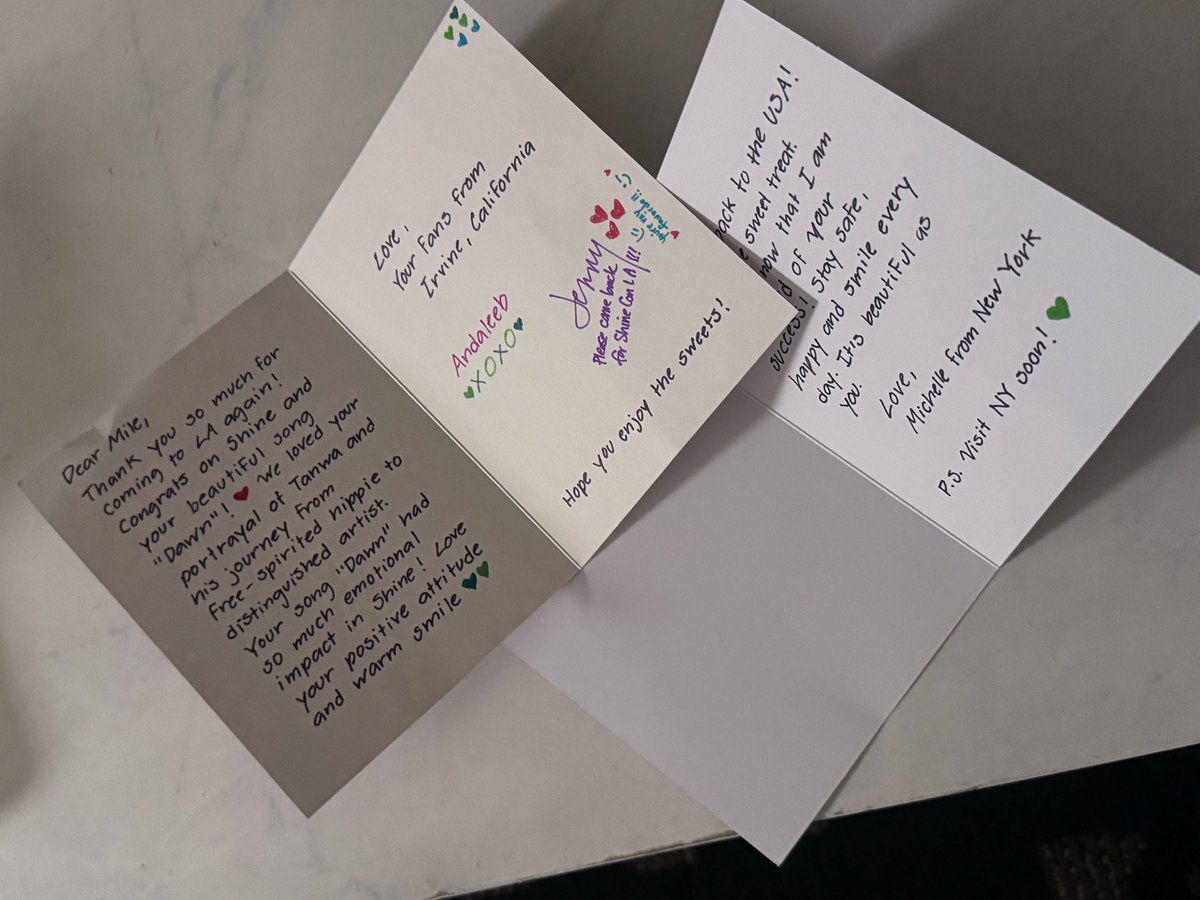 Dear Mile,
Thank you so much for
coming to LA again!
Congrats on Shine and
your beautiful song
"Dawn"! We loved your
portrayal of Tanwa and
his journey from
free-spirited hippie to
distinguished artist.
Your song "Dawn" had
so much emotional
impact in Shine! Love
your positive attitude
and warm smile
Love,
Your fans from
Irvine, California
Andaleeb
XOXO
Jenny
Please come back
for Shine Con LA!!!!
you're my
favorite!!
:)
Hope you enjoy the sweets!
back to the USA!
sweet treat.
now that I am
of your
success! Stay safe,
happy and smile every
day. It is beautiful as
you.
Love,
Michelle from New York
P.S. Visit NY soon!